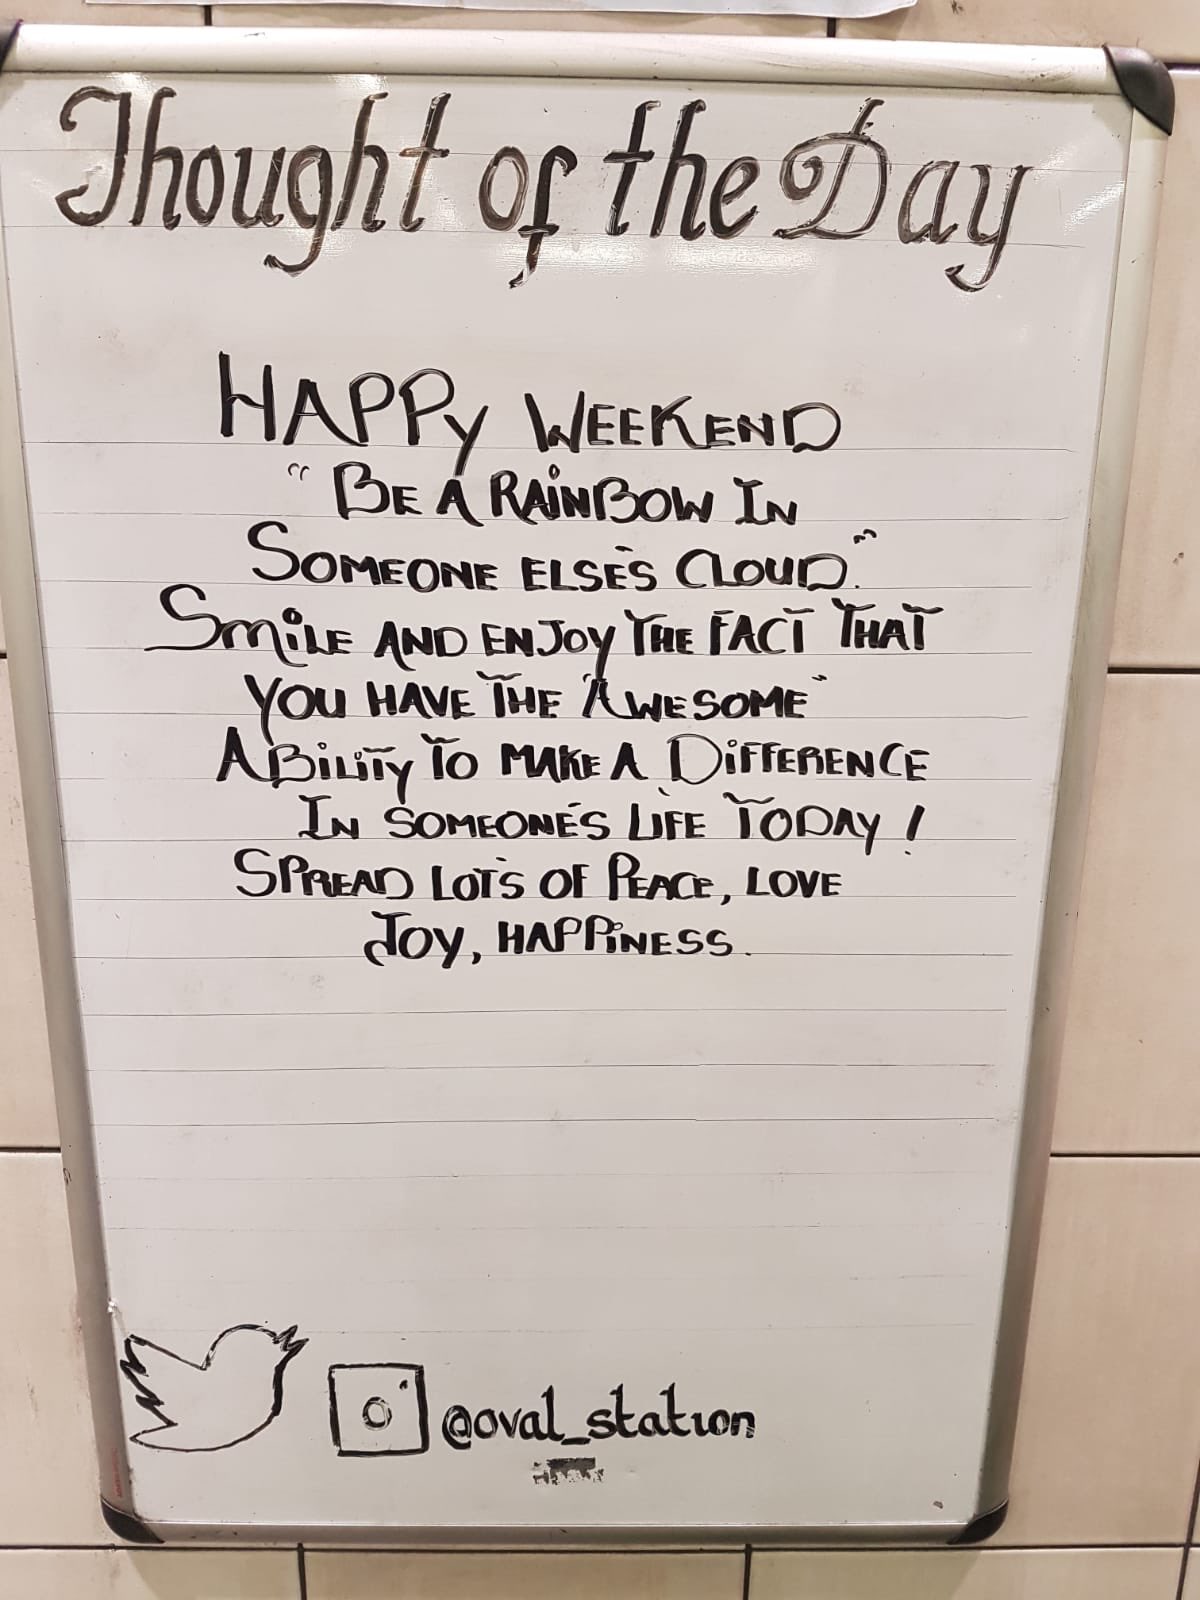 Thought of the Day
HAPPY WEEKEND
"BE A RAINBOW IN
SOMEONE ELSE'S CLOUD."
SMILE AND ENJOY THE FACT THAT
YOU HAVE THE "AWESOME"
ABILITY TO MAKE A DIFFERENCE
IN SOMEONE'S LIFE TODAY!
SPREAD LOT'S OF PEACE, LOVE
JOY, HAPPINESS.
@oval_station